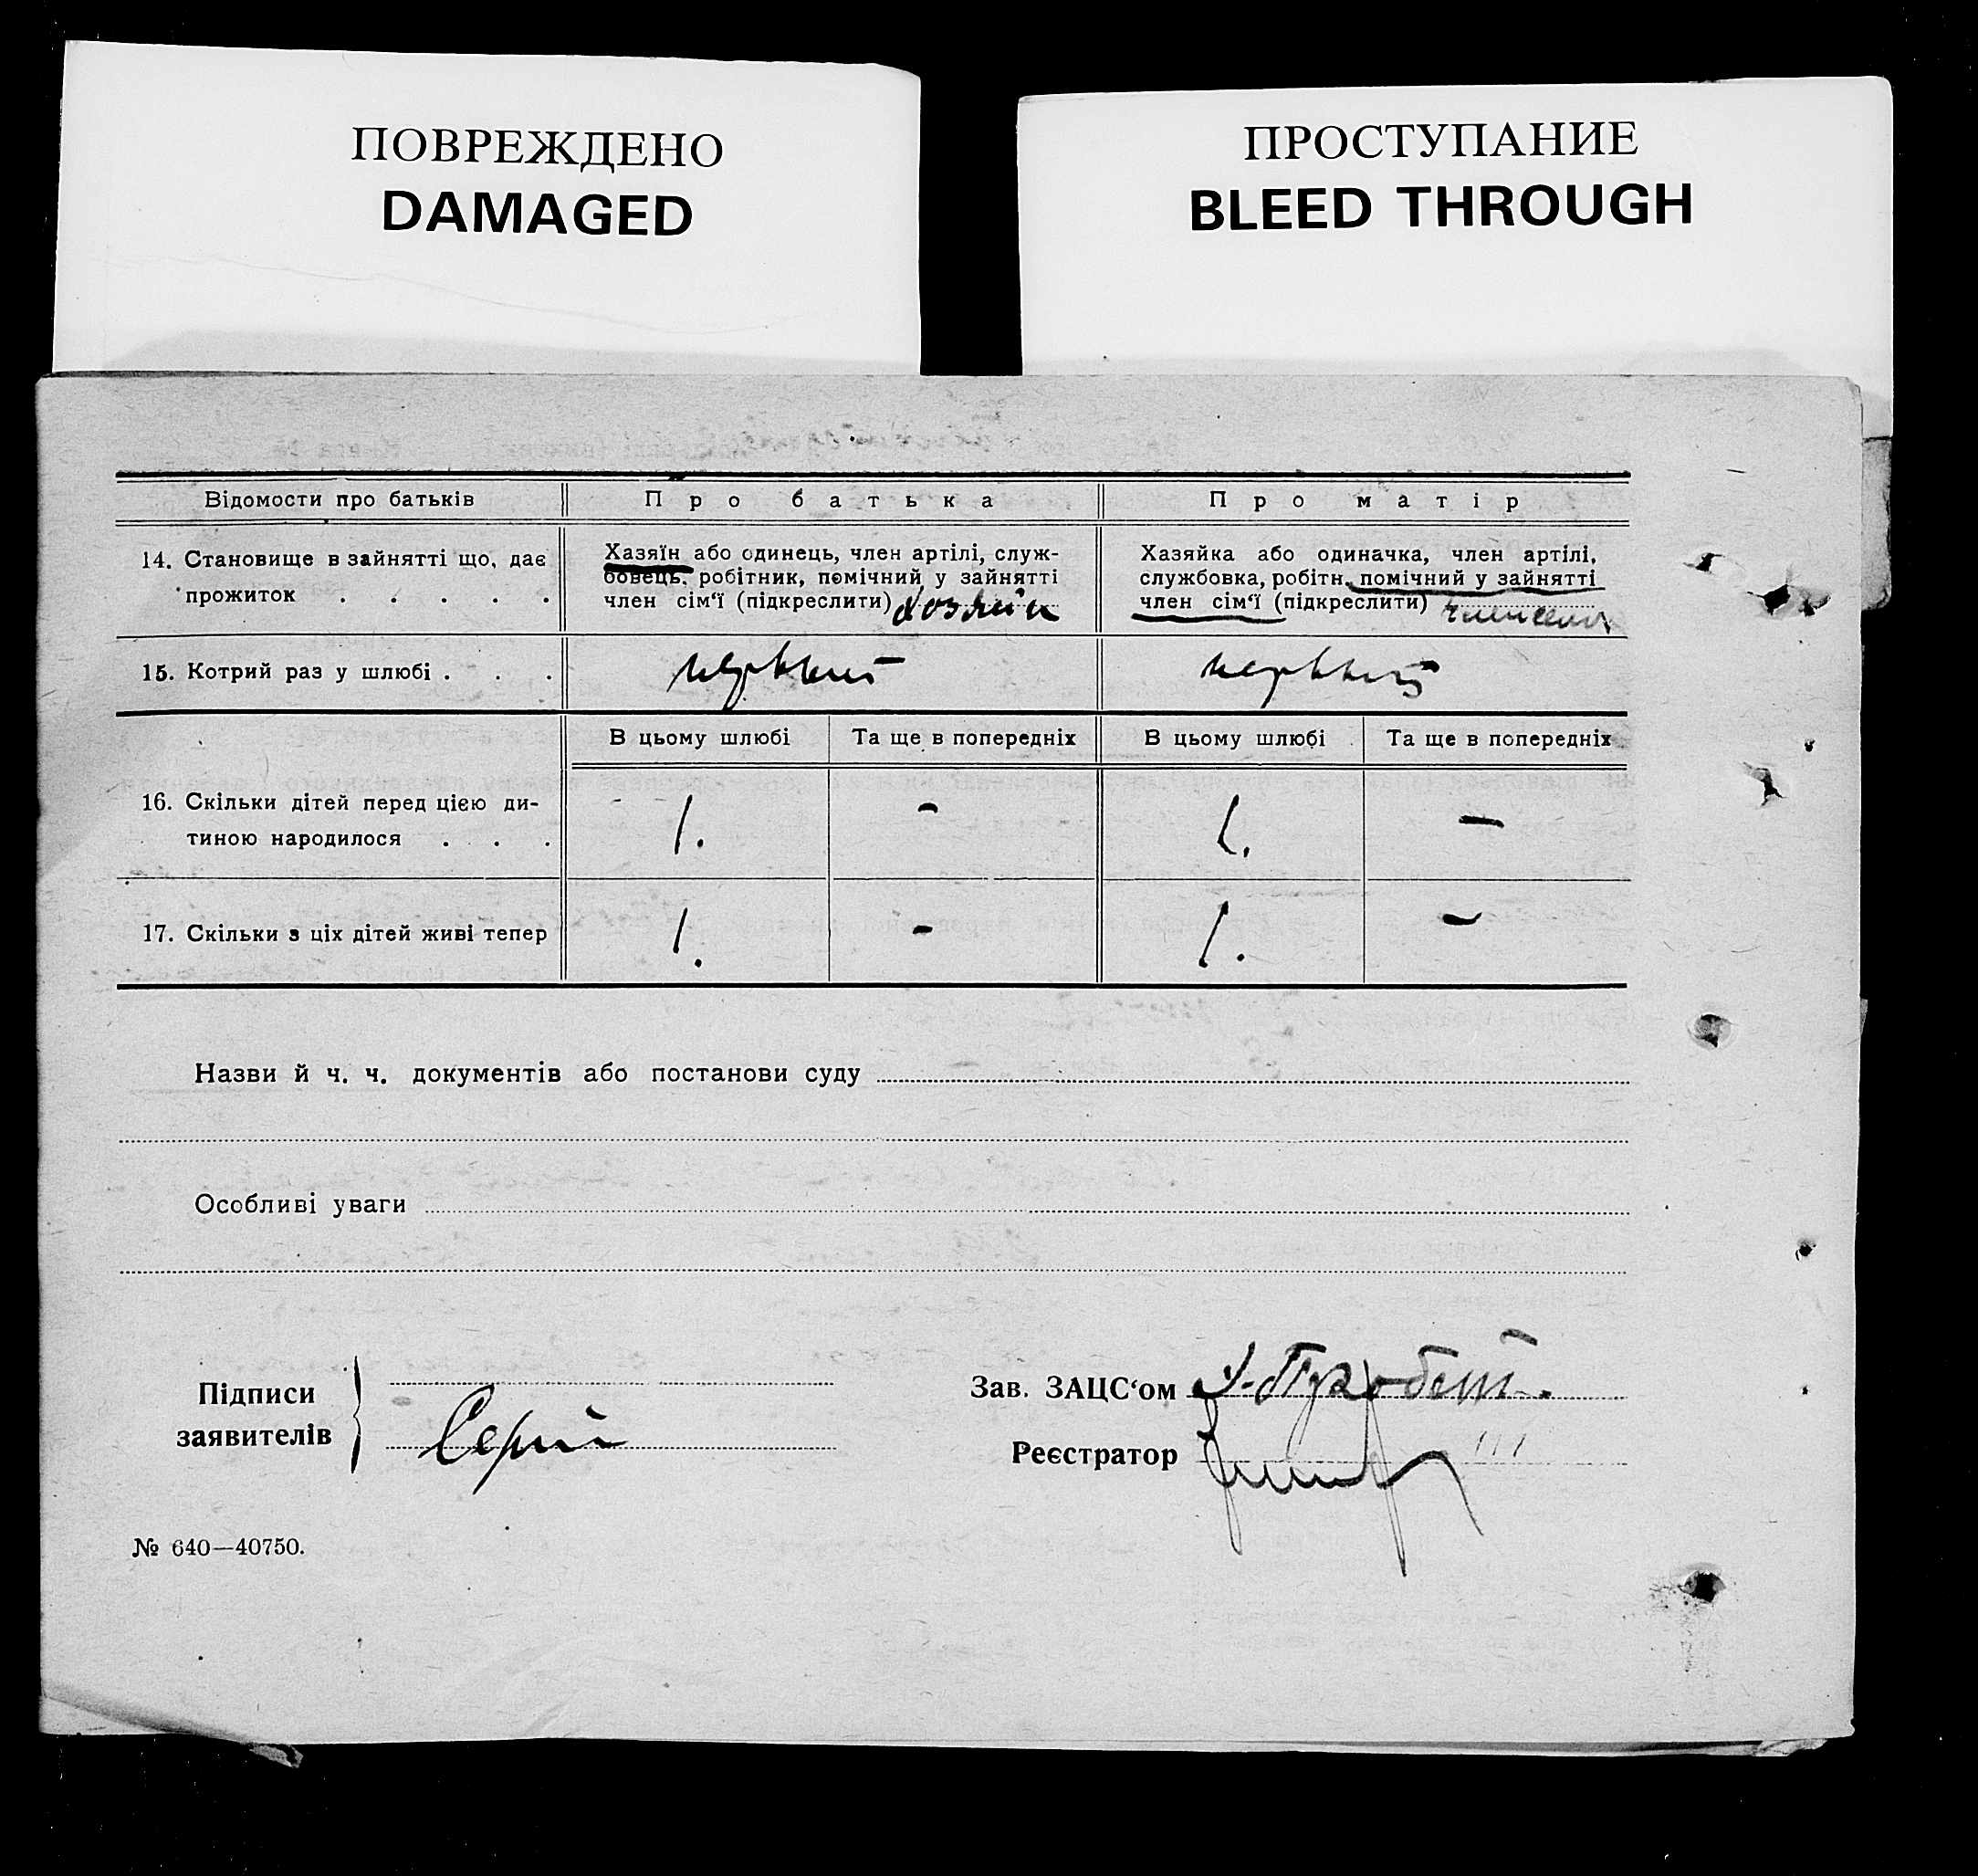 ПОВРЕЖДЕНО
DAMAGED
ПРОСТУПАНИЕ
BLEED THROUGH
Відомости про батьків
Про батька
Про матір
14. Становище в зайнятті що, дає
прожиток . . . . .
Хазяїн або одинець, член артілі, служ-
бовець, робітник, помічний у зайнятті
член сім‘ї (підкреслити) хозяин
Хазяйка або одиначка, член артілі,
службовка, робітн. помічний у зайнятті
член сім‘ї (підкреслити)
15. Котрий раз у шлюбі . . .
первый
первый
В цьому шлюбі
Та ще в попередніх
В цьому шлюбі
Та ще в попередніх
16. Скільки дітей перед цією ди-
тиною народилося . . .
1.
-
1.
-
17. Скільки з ціх дітей живі тепер
1.
-
1.
-
Назви й ч. ч. документів або постанови суду
Особливі уваги
Підписи
заявителів
Зав. ЗАЦС‘ом
Реєстратор
№ 640—40750.